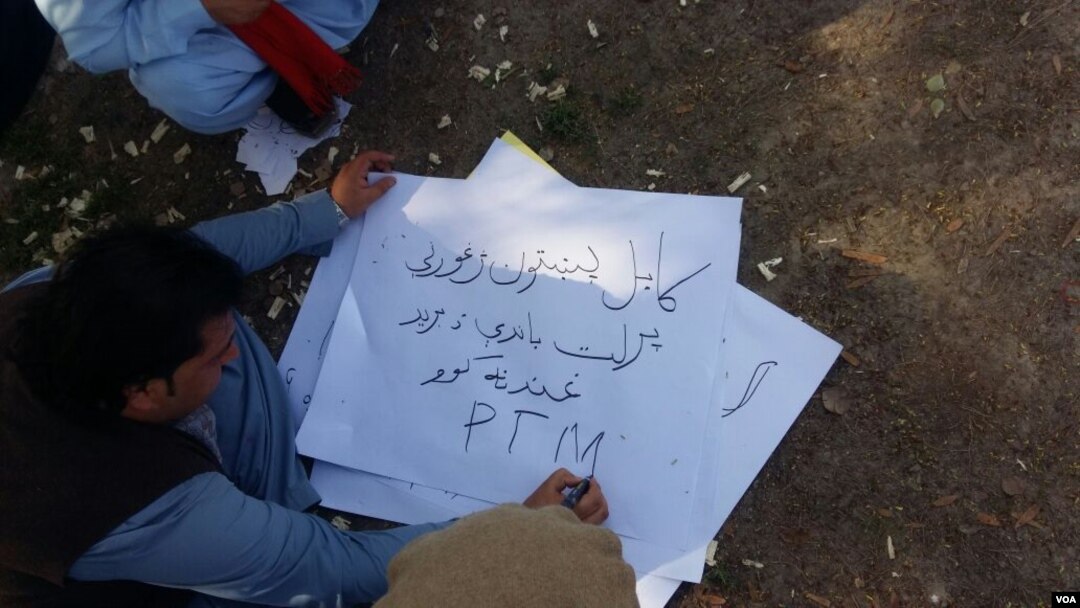 کابل پښتون ژغورنې
پرلت باندې د برید
غندنه کوو
PTM
VOA